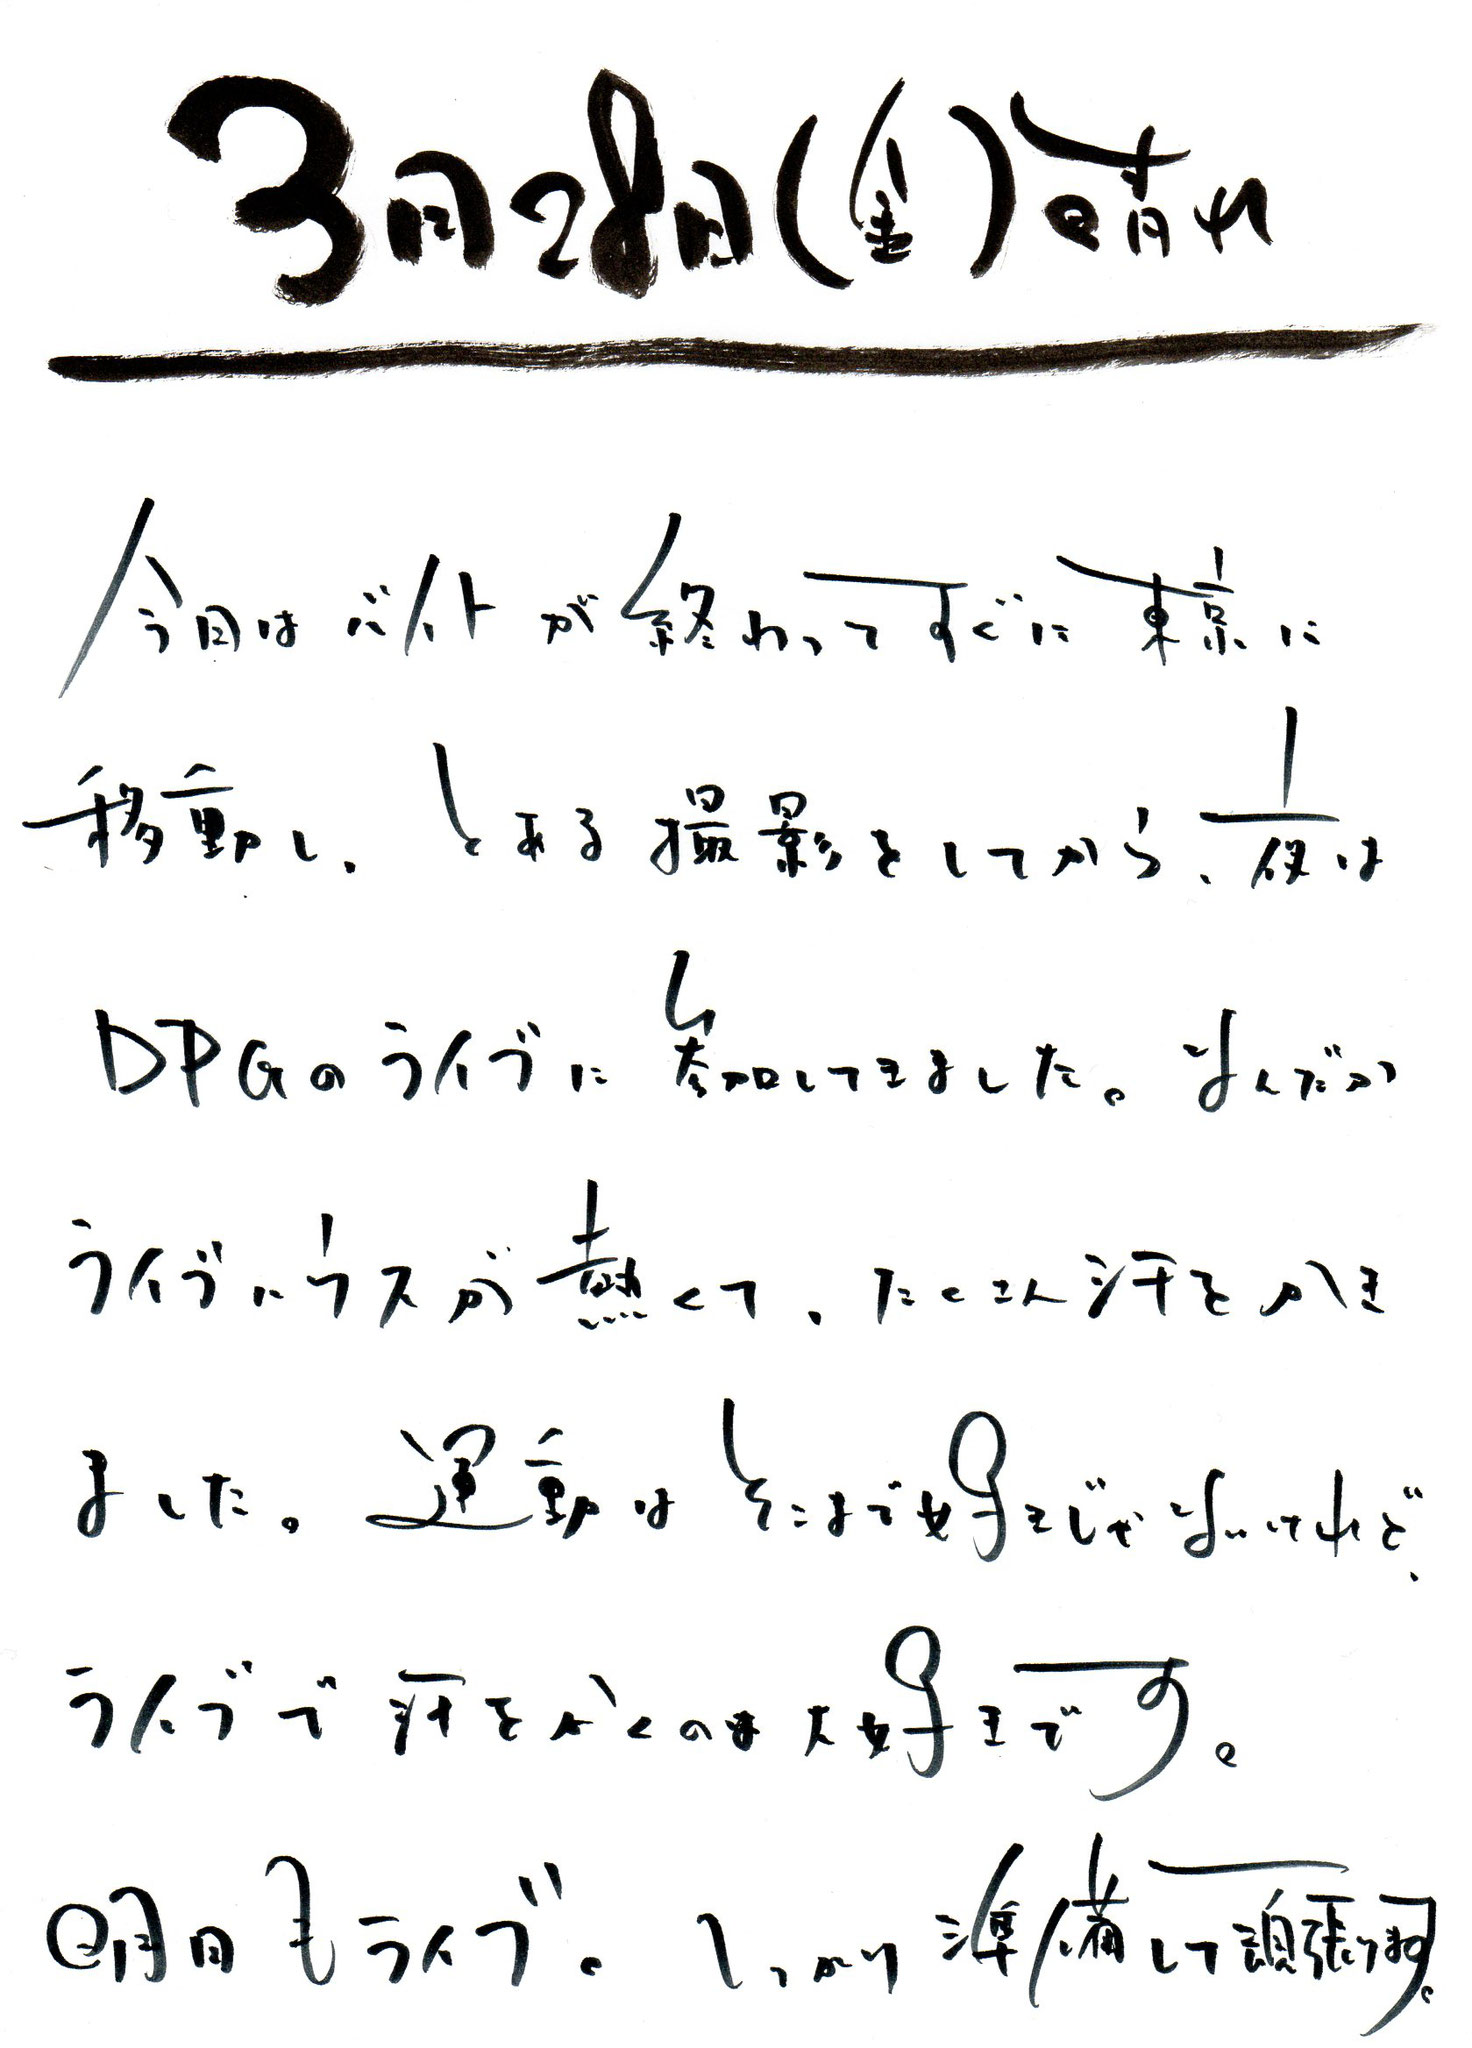 3月28日(金)晴れ
今日はバイトが終わってすぐに東京に
移動し、とある撮影をしてから、夜は
DPGのライブに参加してきました。なんだか
ライブハウスが熱くて、たくさん汗をかき
ました。運動はそこまで好きじゃないけれど、
ライブで汗をかくのは大好きです。
明日もライブ。しっかり準備して頑張ります。